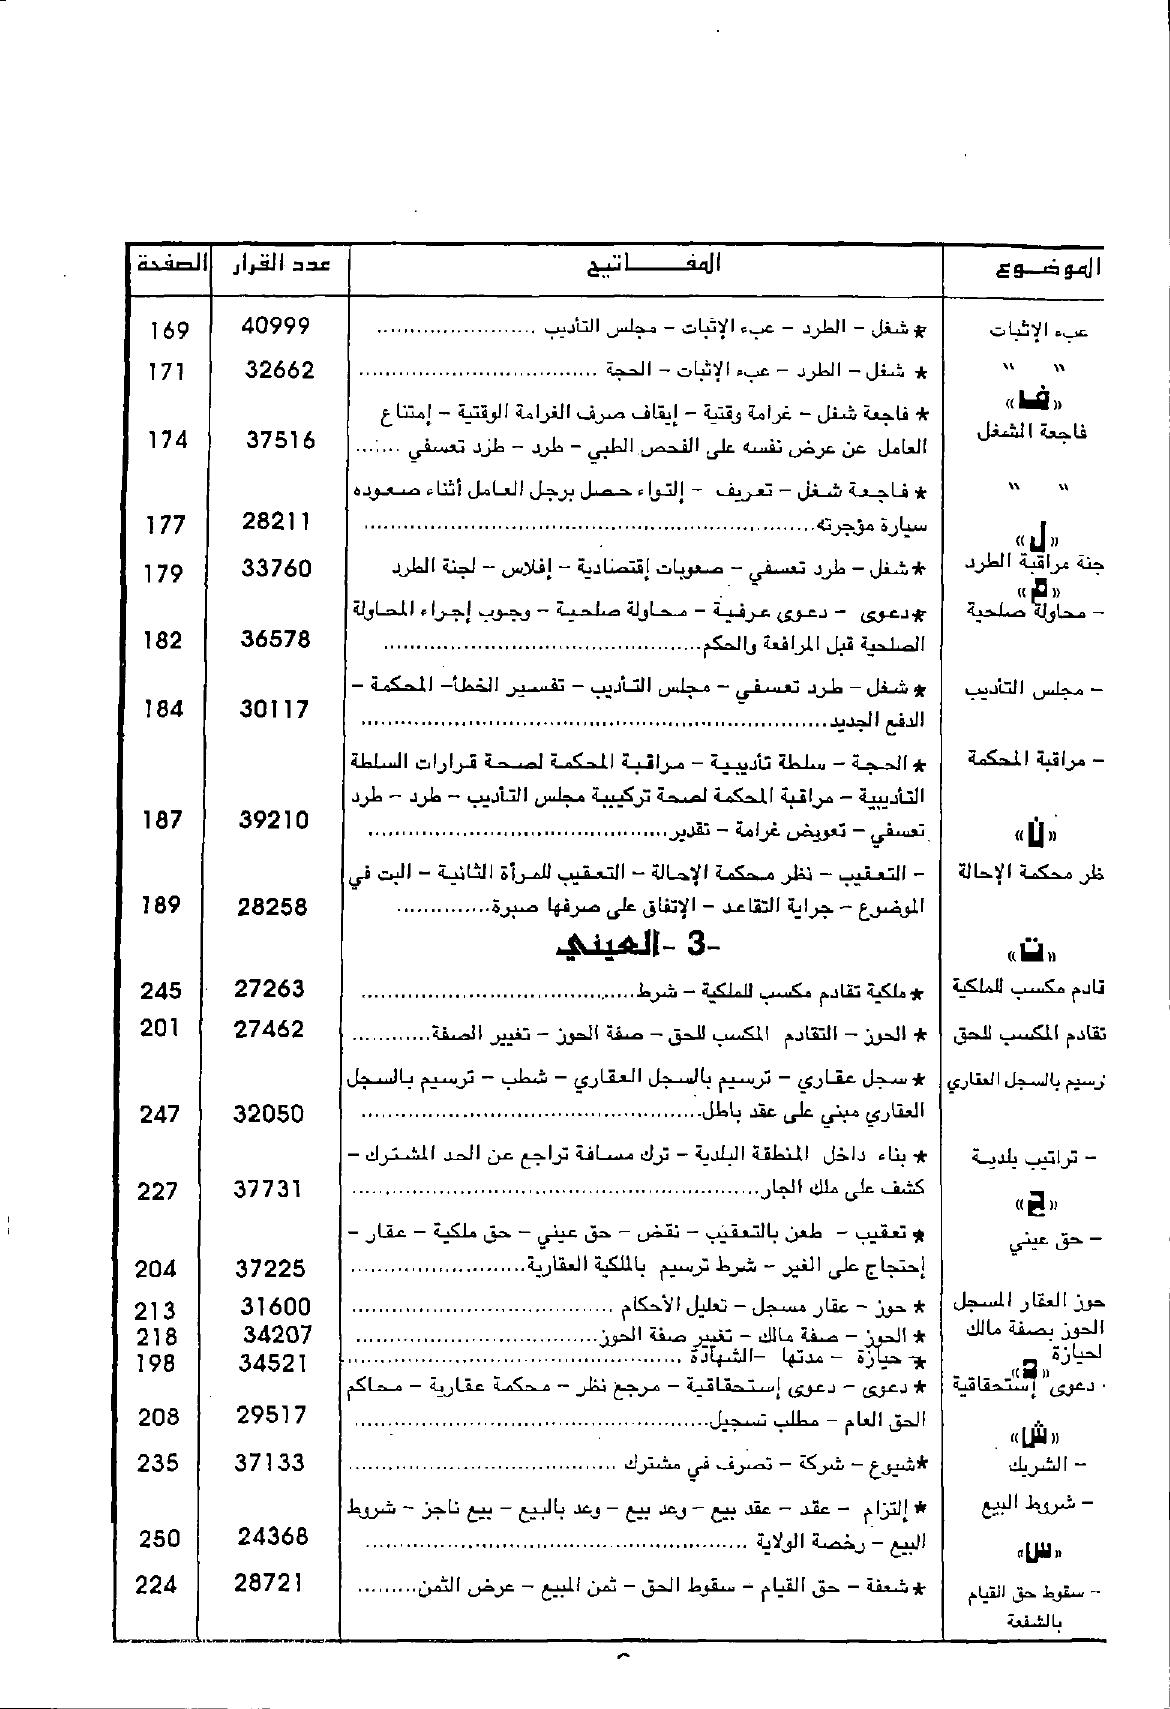 الموضـوع المفـــاتيح عدد القرار الصفحة
عبء الإثبات * شغل - الطرد - عبء الإثبات - مجلس التأديب ........................ 40999 169
" " * شغل - الطرد - عبء الإثبات - الحجة .................................... 32662 171
«ف»
* فاجعة شغل - غرامة وقتية - إيقاف صرف الغرامة الوقتية - إمتناع
فاجعة الشغل العامل عن عرض نفسه على الفحص الطبي - طرد - طرد تعسفي ....... 37516 174
" " * فاجعة شغل - تعريف - إلتواء حصل برجل العامل أثناء صعوده
سيارة مؤجرته.................................................................... 28211 177
«ل»
جنة مراقبة الطرد * شغل - طرد تعسفي - صعوبات إقتصادية - إفلاس - لجنة الطرد 33760 179
«م»
- محاولة صلحية * دعوى - دعوى عرفية - محاولة صلحية - وجوب إجراء المحاولة
الصلحية قبل المرافعة والحكم................................................ 36578 182
- مجلس التأديب * شغل - طرد تعسفي - مجلس التأديب - تفسير الخطأ- المحكمة -
الدفع الجديد...................................................................... 30117 184
- مراقبة المحكمة * الحجة - سلطة تأديبية - مراقبة المحكمة لصحة قرارات السلطة
التأديبية - مراقبة المحكمة لصحة تركيبية مجلس التأديب - طرد - طرد
«ن» تعسفي - تعويض غرامة - تقدير............................................. 39210 187
ظر محكمة الإحالة - التعقيب - نظر محكمة الإحالة - التعقيب للمرأة الثانية - البت في
الموضوع - جراية التقاعد - الإتفاق على صرفها صبرة.............. 28258 189
-3 - العيني
«ت»
قادم مكسب للملكية * ملكية تقادم مكسب للملكية - شرط......................................... 27263 245
تقادم المكسب للحق * الحوز - التقادم المكسب للحق - صفة الحوز - تغيير الصفة............ 27462 201
رسيم بالسجل العقاري * سجل عقاري - ترسيم بالسجل العقاري - شطب - ترسيم بالسجل
العقاري مبني على عقد باطل................................................... 32050 247
- تراتيب بلدية * بناء داخل المنطقة البلدية - ترك مسافة تراجع عن الحد المشترك -
كشف على ملك الجار............................................................. 37731 227
«ح»
- حق عيني * تعقيب - طعن بالتعقيب - نقض - حق عيني - حق ملكية - عقار -
إحتجاج على الغير - شرط ترسيم بالملكية العقارية......................... 37225 204
حوز العقار المسجل * حوز - عقار مسجل - تعليل الأحكام ....................................... 31600 213
الحوز بصفة مالك * الحوز - صفة مالك - تغيير صفة الحوز..................................... 34207 218
لحيازة * - حيازة - مدتها -الشهادة .................................................. 34521 198
دعوى إستحقاقية * دعوى - دعوى إستحقاقية - مرجع نظر - محكمة عقارية - محاكم
الحق العام - مطلب تسجيل..................................................... 29517 208
«ش»
- الشريك * شيوع - شركة - تصرف في مشترك ........................................ 37133 235
- شروط البيع * إلتزام - عقد - عقد بيع - وعد بيع - وعد بالبيع - بيع ناجز - شروط
البيع - رخصة الولاية ......................................................... 24368 250
«س»
- سقوط حق القيام * شفعة - حق القيام - سقوط الحق - ثمن المبيع - عرض الثمن......... 28721 224
بالشفعة